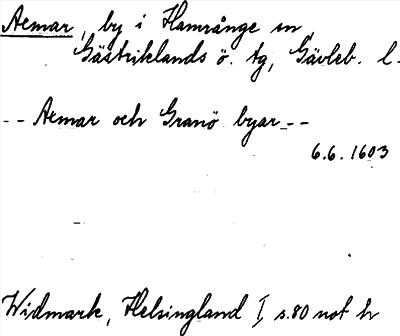 Aemar, by i Hamrånge sn
Gästriklands ö. tg, Gävleb. l.
-- Aemar och Granö byar --
6.6.1603
Widmark, Helsingland I s.80 not h